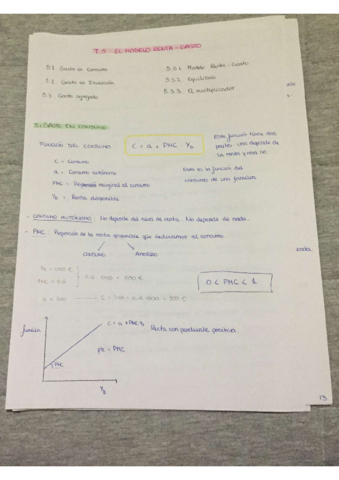 T.5 - EL MODELO RENTA-GASTO
5.1 Gasto en Consumo
5.2 Gasto en Inversión
5.3 Gasto agregado
5.3.1 Modelo Renta-Gasto
5.3.2 Equilibrio
5.3.3 El multiplicador
5.1 GASTO EN CONSUMO
FUNCIÓN DEL CONSUMO
C = a + PMC YD
Esta función tiene dos
partes: una depende de
la renta y otra no.
C = Consumo
a = Consumo autónomo
PMC = marginal al consumo
YD = Renta disponible
Esta es la función del
consumo de una familia
- CONSUMO AUTÓNOMO: No depende del nivel de renta. No depende de nada.
- PMC: de la renta que dedicamos al consumo.
CONSUMO
AHORRO
0 < PMC < 1
función
C = a + PMC YD
Recta con pendiente positiva.
PMC
= PMC
YD
13